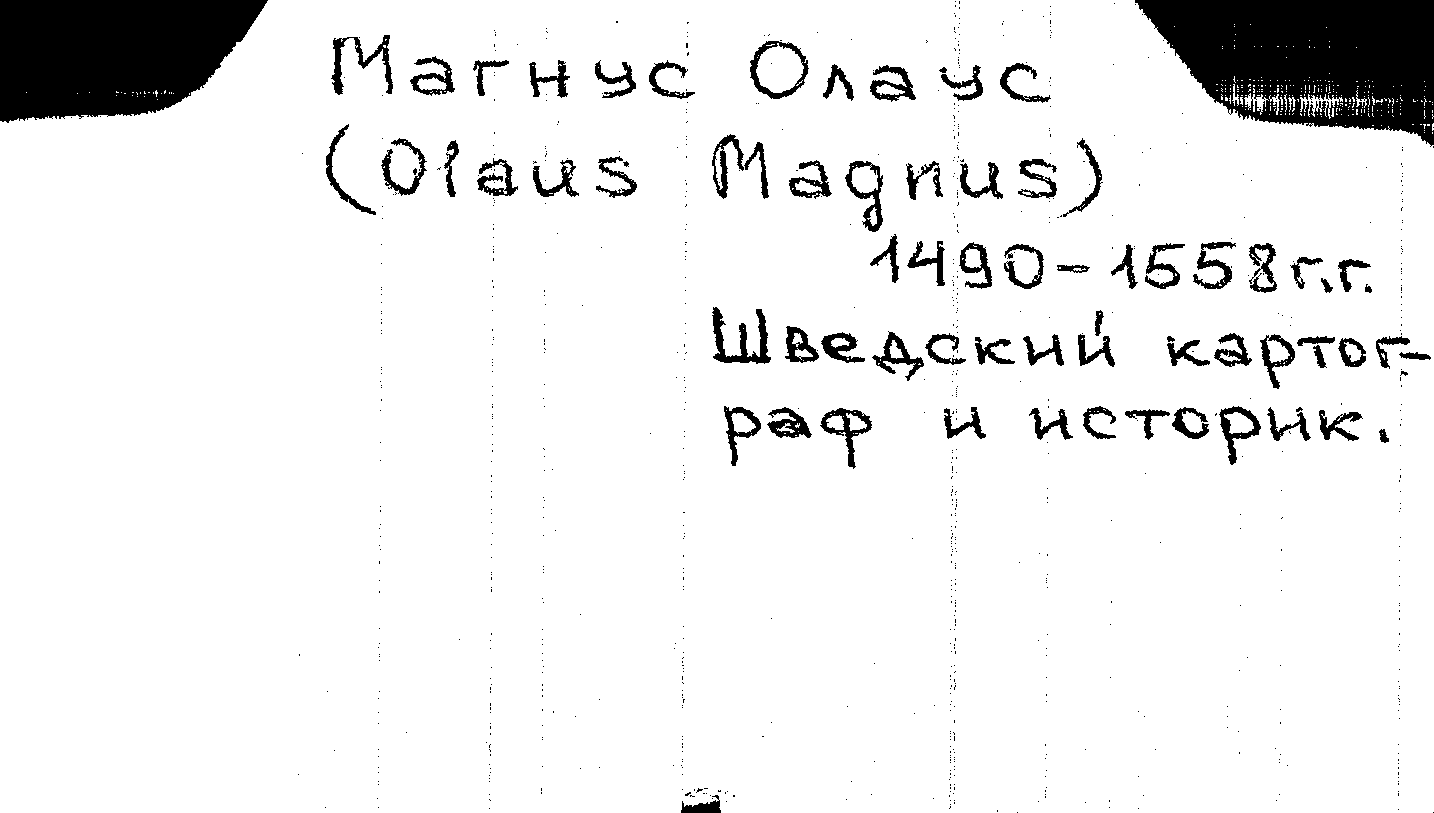 Магнус Олаус
(Olaus Magnus)
1490-1558г.г.
Шведский картог-
раф и историк.